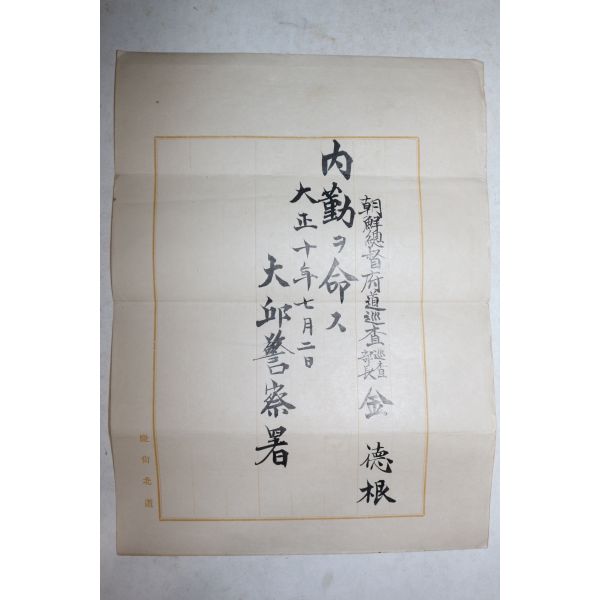 朝鮮總督府道巡査巡査部長 金德根
内勤ヲ命ス
大正十年七月二日
大邱警察署
慶尚北道